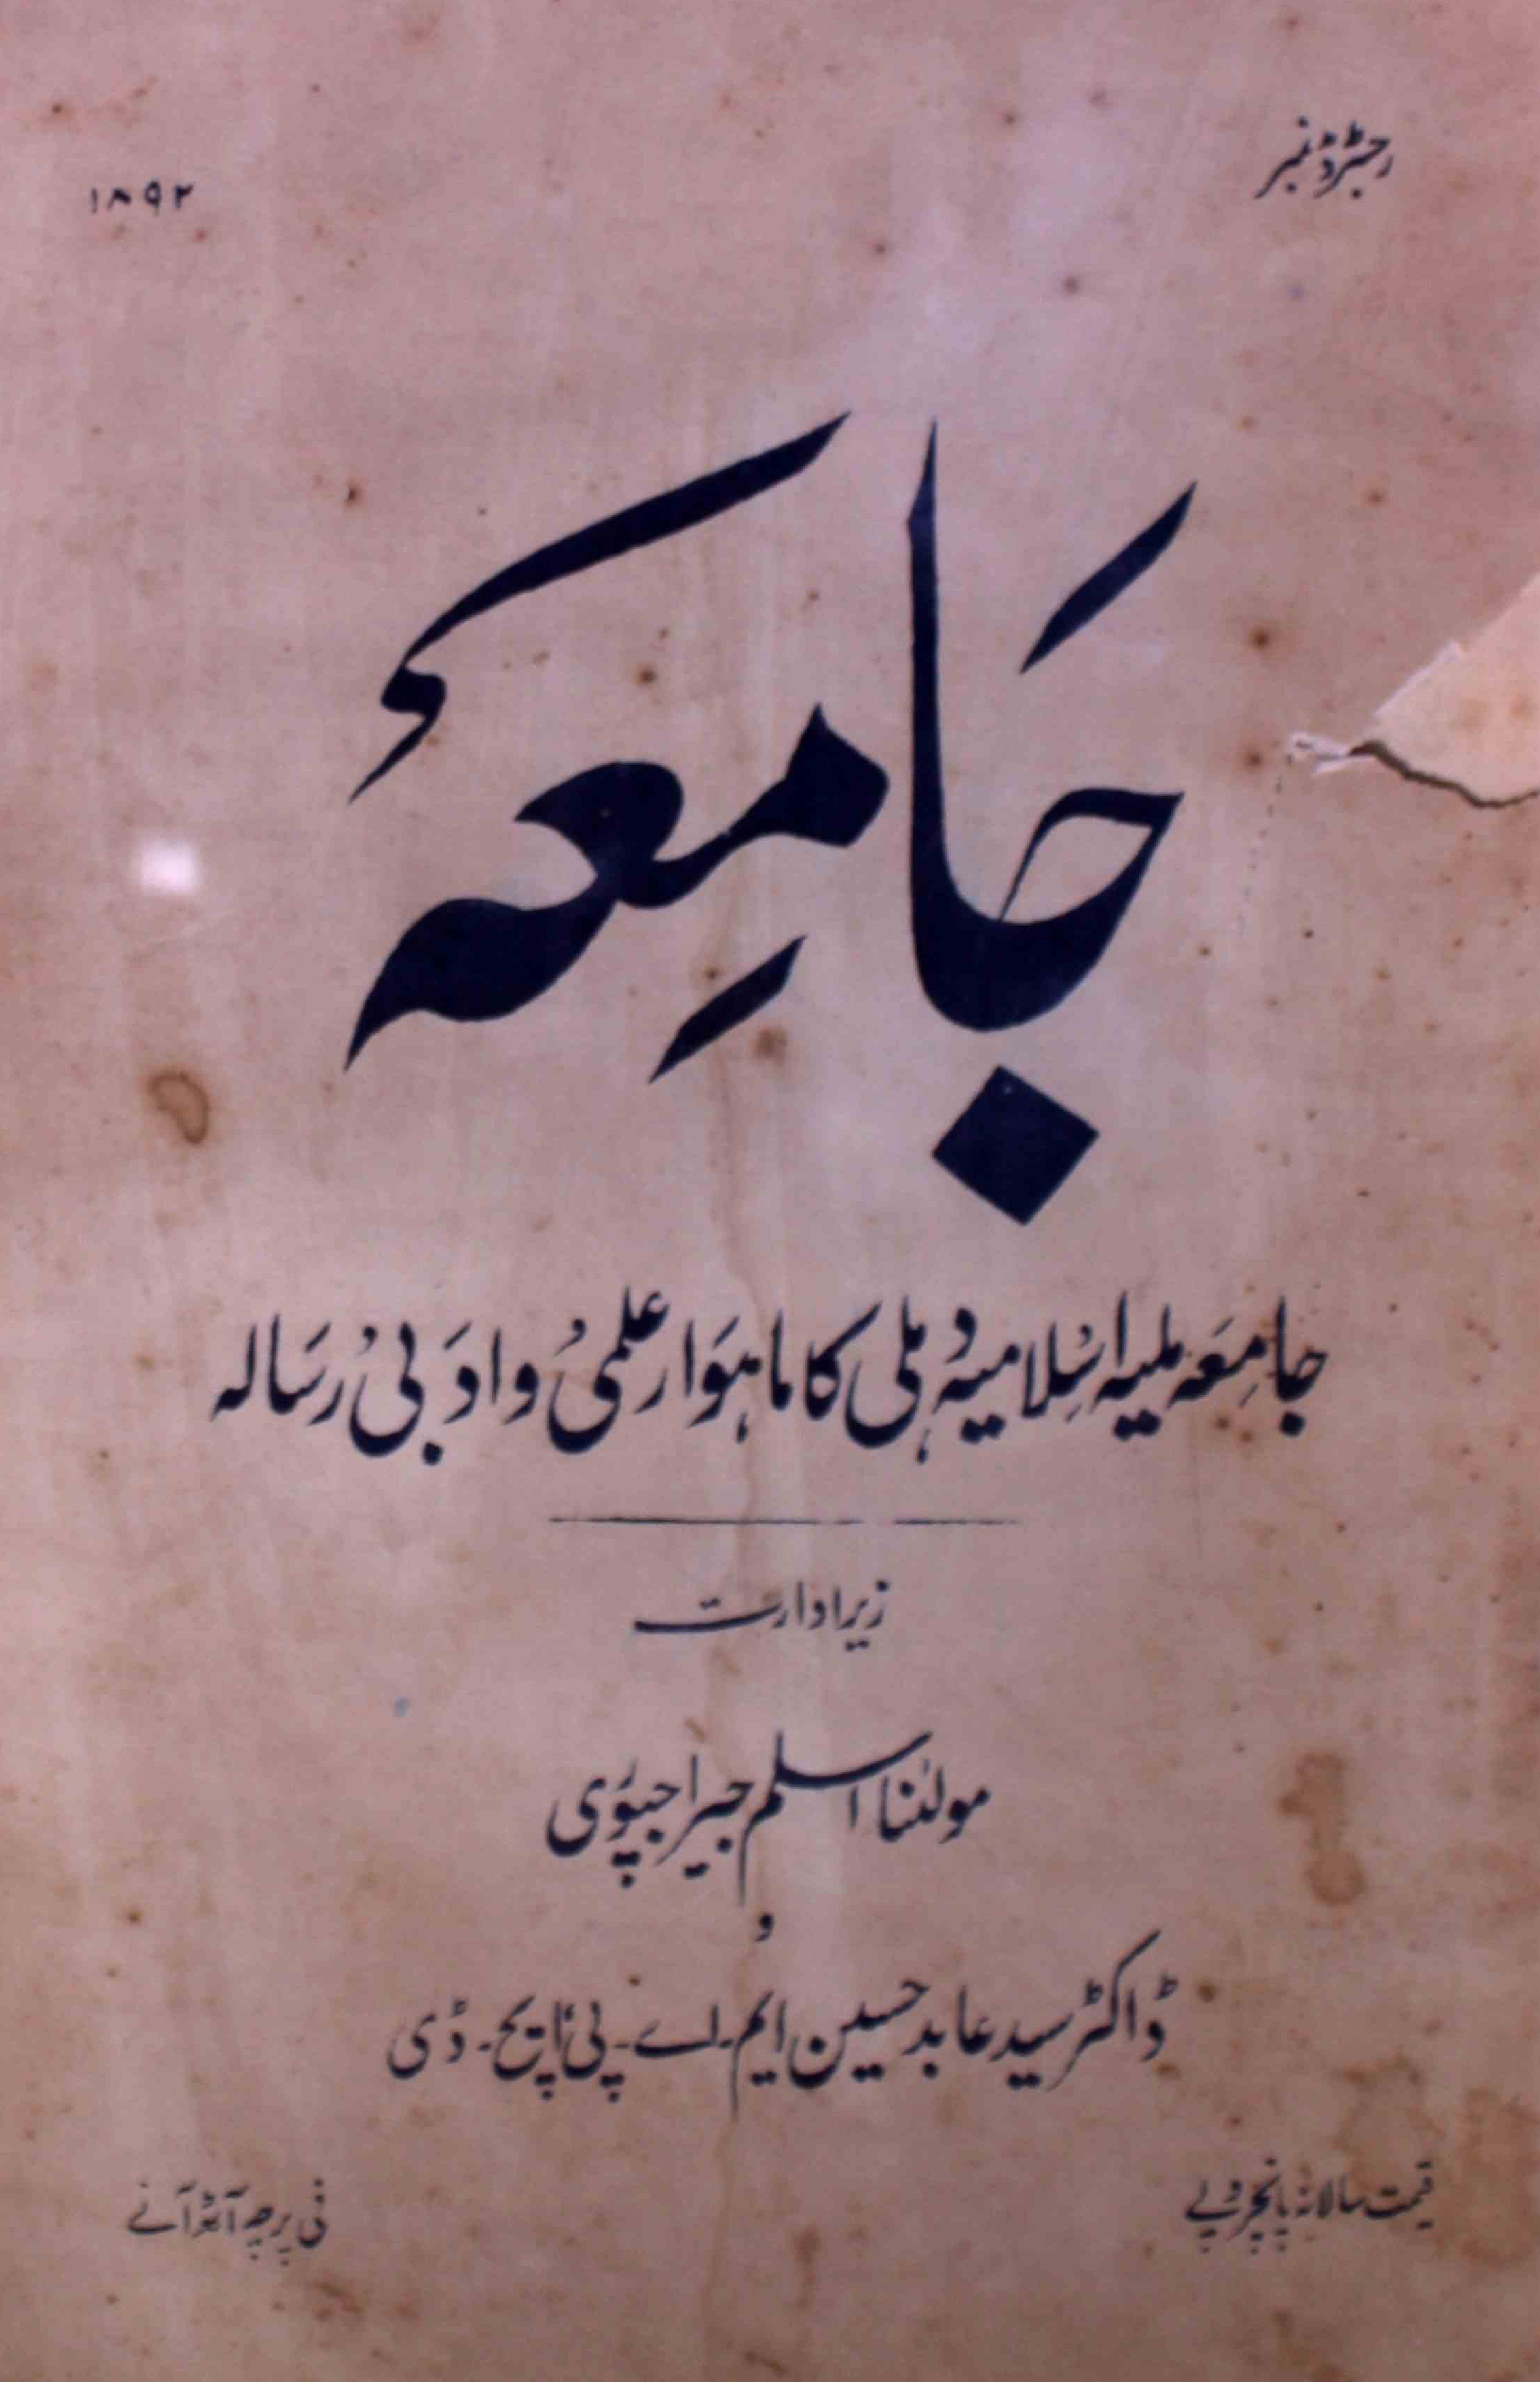 رجسٹرڈ نمبر ۱۸۹۲
جَامِعَہ
جامِعَہ ملیہ اسلامیہ دہلی کا ماہوار علمی و ادبی رسالہ
زیر ادارت
مولٰنا اسلم جیراجپوری
و
ڈاکٹر سید عابد حسین ایم۔اے۔پی ایچ۔ڈی
قیمت سالانہ پانچروپے فی پرچہ آٹھ آنے